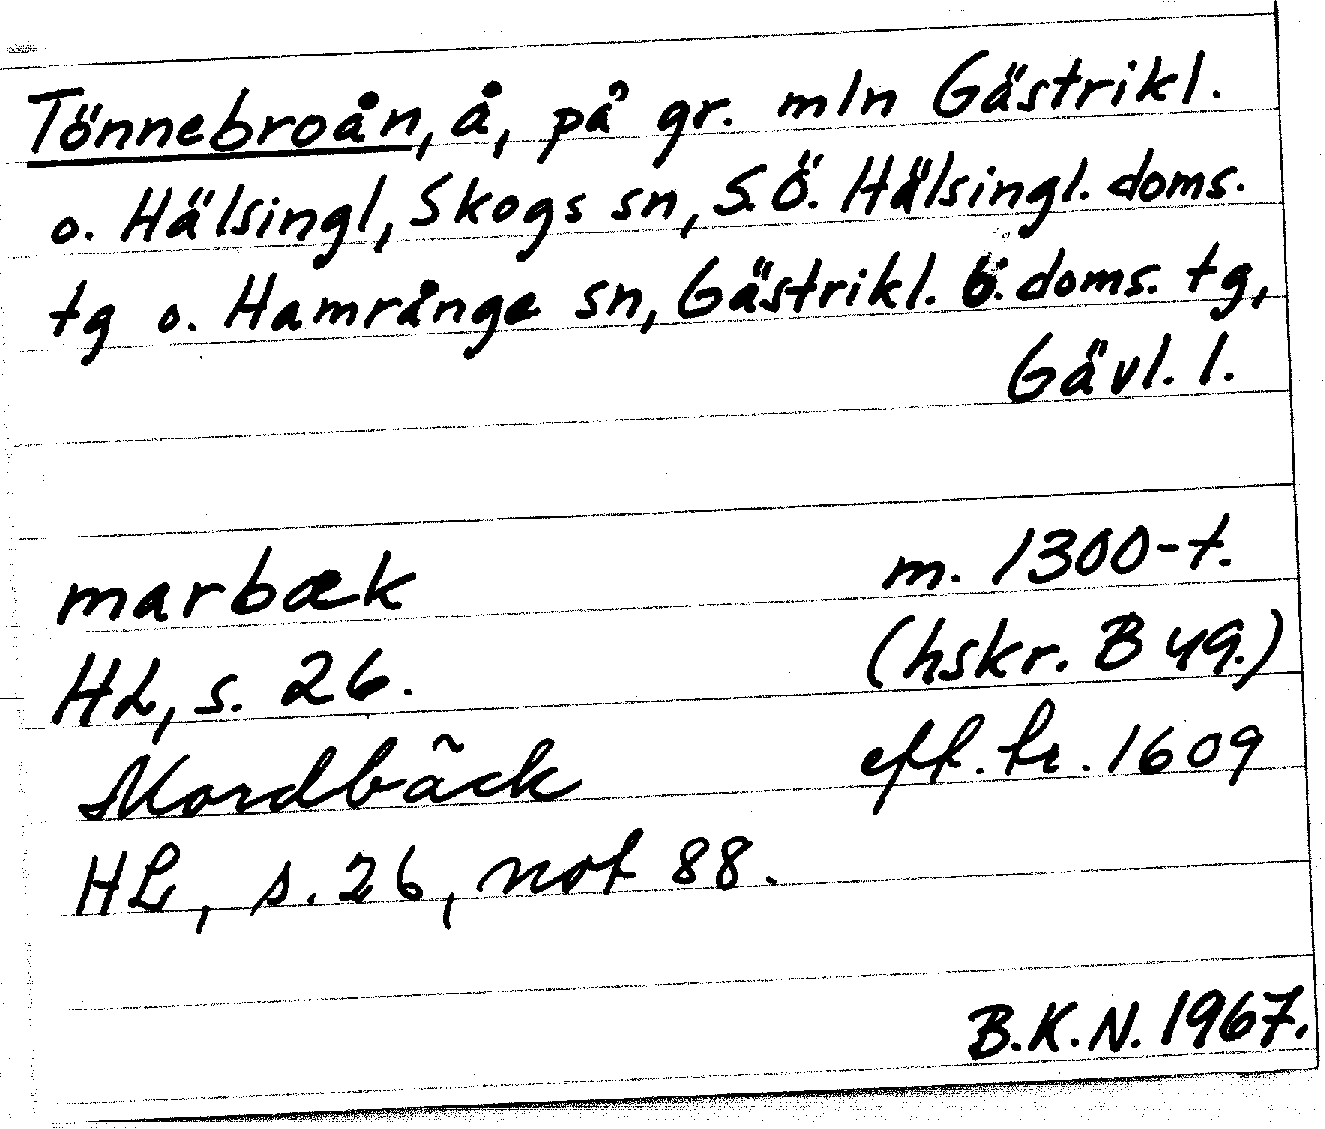 Tönnebroån, å, på gr. mln Gästrikl.
o. Hälsingl, Skogs sn, S.Ö. Hälsingl. doms.
tg o. Hamrånge sn, Gästrikl. Ö. doms. tg,
Gävl. l.
marbæk m. 1300-t.
HL, s. 26. (hskr. B 49.)
Mordbäck eft. tr. 1609
HL, s. 26, not 88.
B.K.N. 1967.